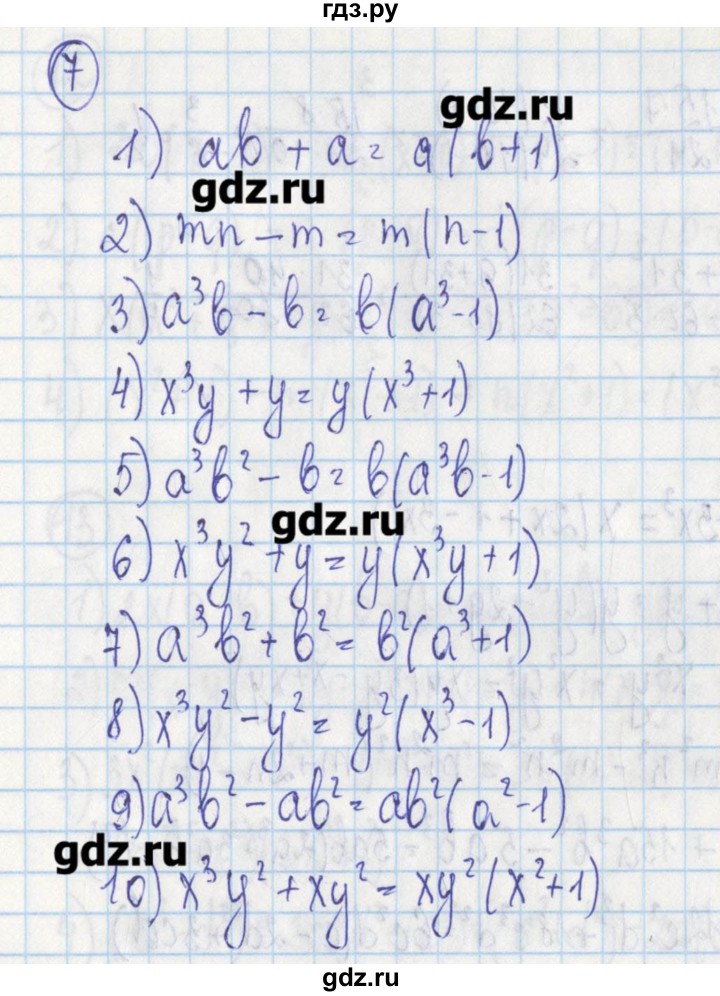 гдз.ру
7
gdz.ru
1) ab + a = a(b+1)
gdz.ru
2) mn - m = m(n-1)
3) a³b - b = b(a³-1)
4) x³y + y = y(x³+1)
5) a³b² - b = b(a³b-1)
gdz.ru
6) x³y² + y = y(x³y+1)
7) a³b² + b² = b²(a³+1)
8) x³y² - y² = y²(x³-1)
9) a³b² - ab² = ab²(a²-1)
gdz.ru
10) x³y² + xy² = xy²(x²+1)
gdz.ru